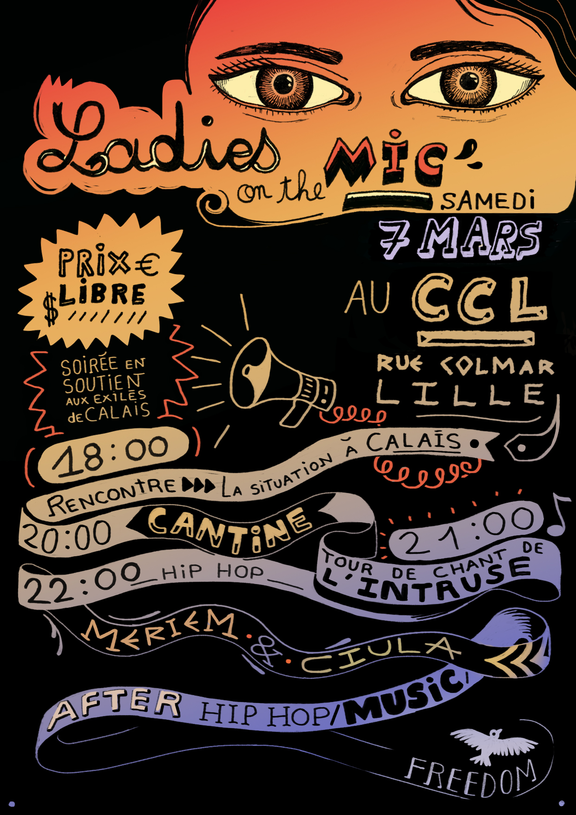 Ladies
on the MIC
SAMEDI
7 MARS
AU CCL
RUE COLMAR
LILLE
PRIX €
$ LIBRE
SOIRÉE EN
SOUTIEN
AUX EXILÉS
de CALAIS
18:00
RENCONTRE LA SITUATION À CALAIS
20:00 CANTINE
21:00
TOUR DE CHANT DE
L'INTRUSE
22:00 HIP HOP
MERIEM & CIULA
AFTER HIP HOP/MUSIC/
FREEDOM